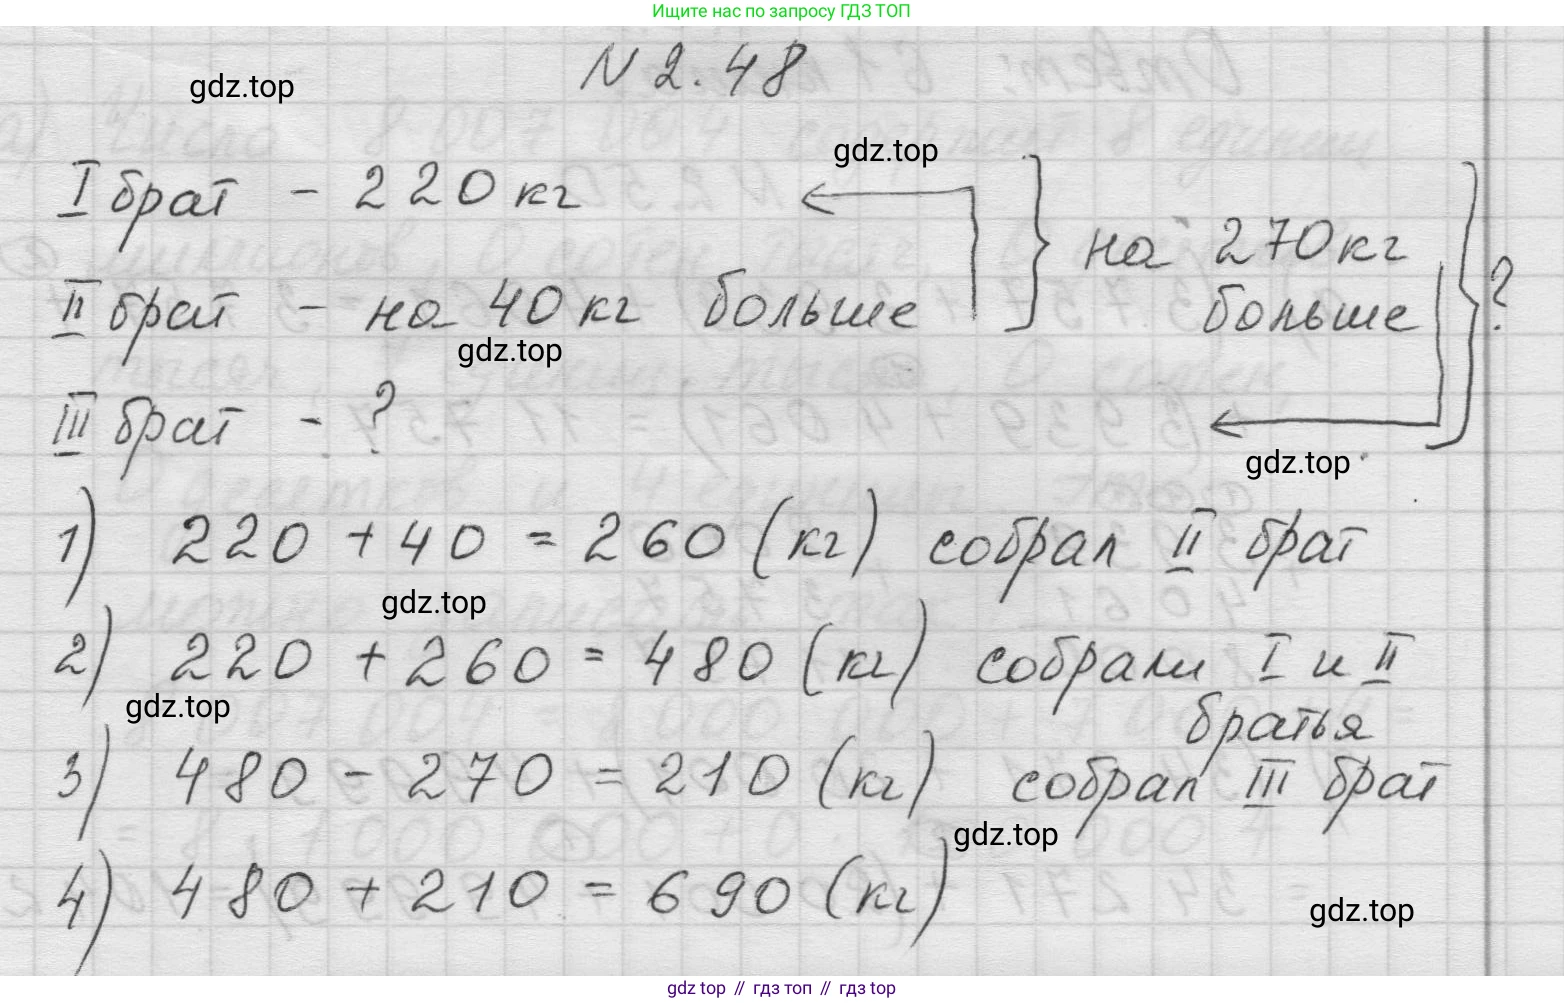 Ищите нас по запросу ГДЗ ТОП
N 2.48
gdz.top
gdz.top
I брат - 220 кг
II брат - на 40 кг больше
на 270 кг
больше
?
gdz.top
III брат - ?
gdz.top
1) 220 + 40 = 260 (кг) собрал II брат
gdz.top
2) 220 + 260 = 480 (кг) собрали I и II
братья
gdz.top
3) 480 - 270 = 210 (кг) собрал III брат
gdz.top
4) 480 + 210 = 690 (кг)
gdz.top
gdz top // гдз топ // гдз top